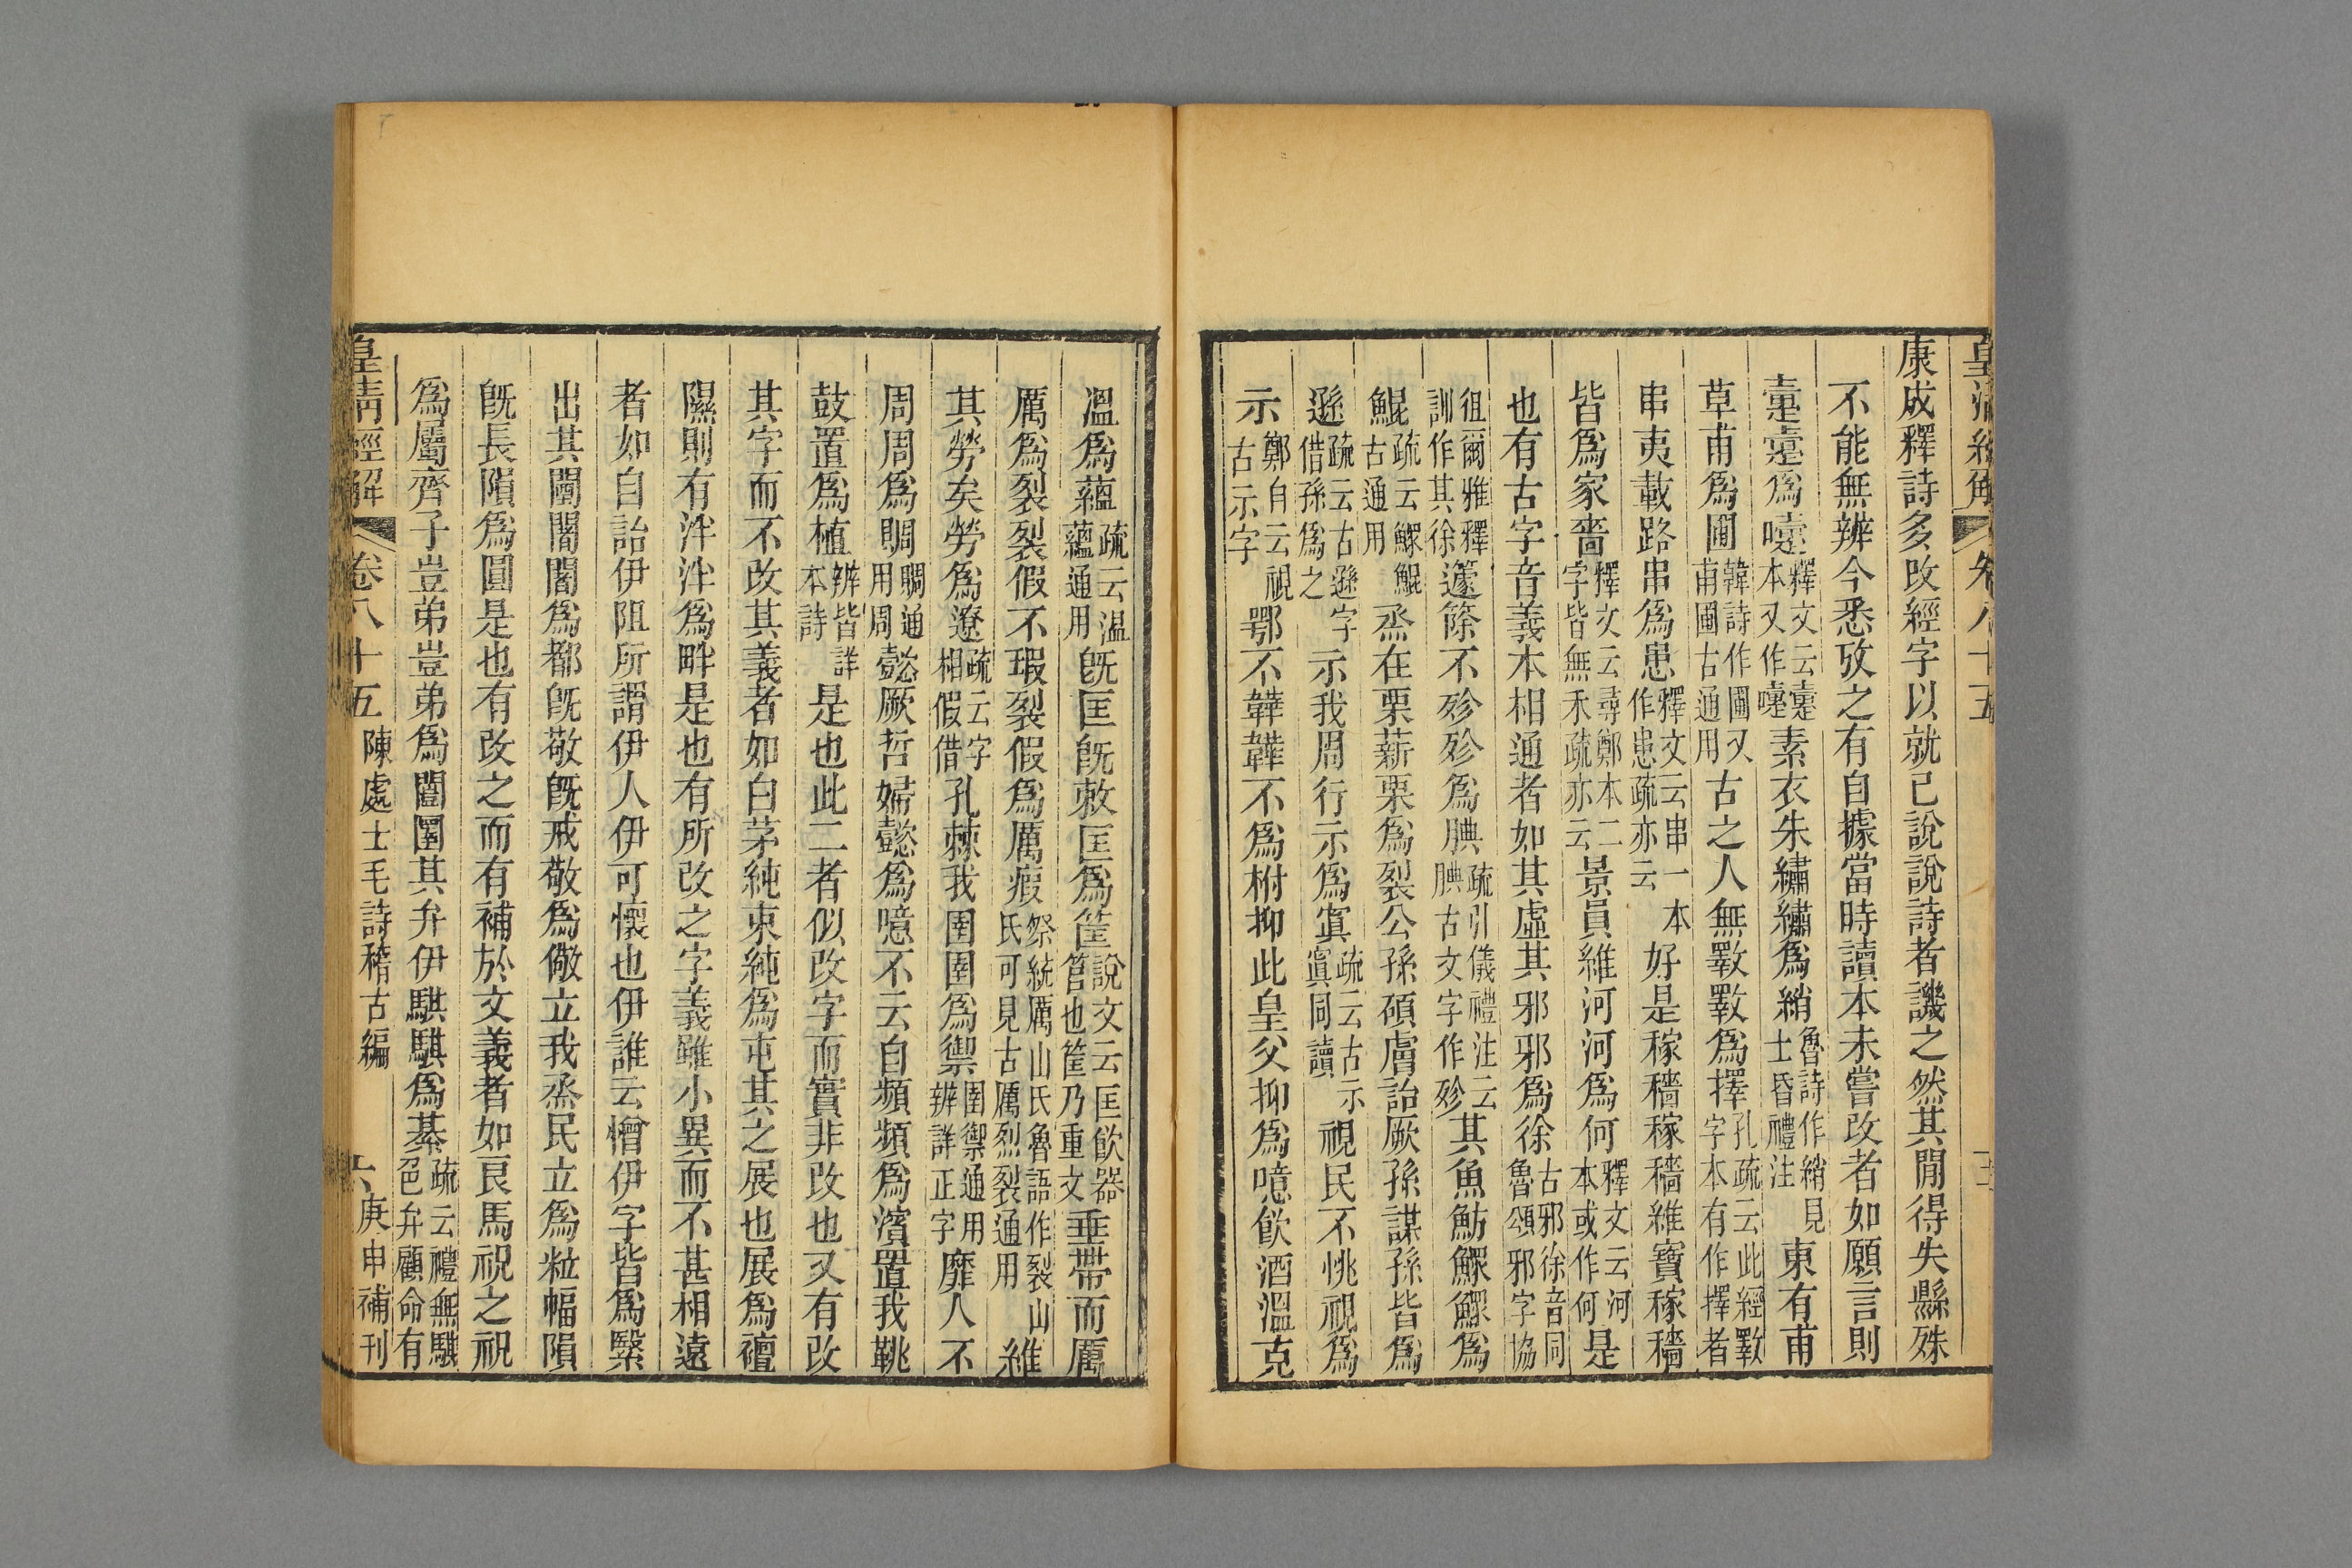 皇清經解 卷八十五
康成釋詩多改經字以就已說說詩者譏之然其閒得失縣殊
不能無辨今悉攷之有自據當時讀本未嘗改者如願言則
疐疐為嚏釋文云疐本又作嚏素衣朱繡繡為綃魯詩作綃見士昏禮注東有甫
草甫為圃韓詩作圃又甫圃古通用古之人無斁斁為擇孔疏云此經斁字本有作擇者
串夷載路串為患釋文云串一本作患疏亦云好是稼穡稼穡維寶稼穡
皆為家嗇釋文云尋鄭本二字皆無禾疏亦云景員維河河為何釋文云河本或作何是
也有古字音義本相通者如其虛其邪邪為徐古邪徐音同魯頌邪字協
徂爾雅釋訓作其徐籧篨不殄殄為腆疏引儀禮注云腆古文字作殄其魚魴鰥鰥為
鯤疏云鰥鯤古通用烝在栗薪栗為裂公孫碩膚詒厥孫謀孫皆為
遜疏云古遜字借孫為之示我周行示為寘疏云古示寘同讀視民不恌視為
示鄭自云視古示字鄂不韡韡不為柎抑此皇父抑為噫飲酒溫克
溫為蘊疏云溫蘊通用既匡既敕匡為筐說文云匡飲器筥也筐乃重文垂帶而厲
厲為裂裂假不瑕裂假為厲瘕祭統厲山氏魯語作裂山氏可見古厲烈裂通用維
其勞矣勞為遼疏云字相假借孔棘我圉圉為禦圉禦通用辨詳正字靡人不
周周為賙賙通用周懿厥哲婦懿為噫不云自頻頻為濱置我鞉
鼓置為植辨皆詳本詩是也此二者似改字而實非改也又有改
其字而不改其義者如白茅純束純為屯其之展也展為襢
隰則有泮泮為畔是也有所改之字義雖小異而不甚相遠
者如自詒伊阻所謂伊人伊可懷也伊誰云憎伊字皆為繄
出其闉闍闍為都既敬既戒敬為儆立我烝民立為粒幅隕
既長隕為圓是也有改之而有補於文義者如良馬祝之祝
為屬齊子豈弟豈弟為闓圛其弁伊騏騏為綦疏云禮無騏色弁顧命有
皇清經解 卷八十五 陳處士毛詩稽古編 六 庚申補刊